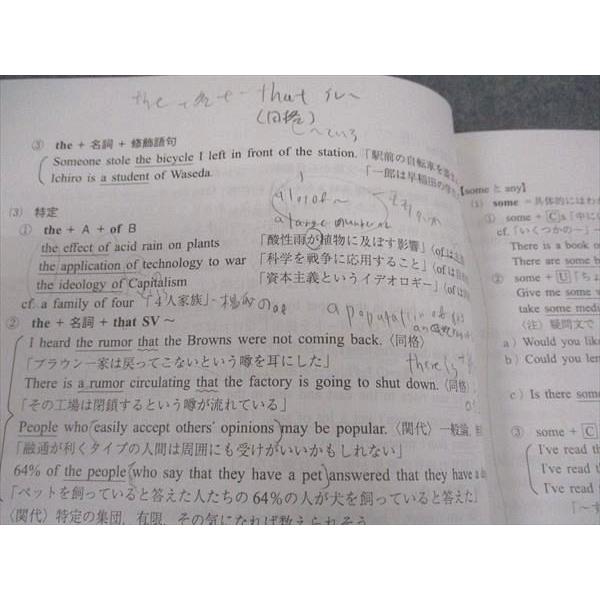 the + 名 + that SV〜
(同格)
③ the + 名詞 + 修飾語句
Someone stole the bicycle I left in front of the station.「駅前の自転車を
Ichiro is a student of Waseda.「一郎は早稲田の
(3) 特定
① the + A + of B
the effect of acid rain on plants「酸性雨が植物に及ぼす影響」〈ofは
the application of technology to war「科学を戦争に応用すること」〈ofは
the ideology of Capitalism「資本主義というイデオロギー」〈ofは
cf. a family of four「4人家族」
② the + 名詞 + that SV 〜
I heard the rumor that the Browns were not coming back.〈同格〉
「ブラウン一家は戻ってこないという噂を耳にした」
There is a rumor circulating that the factory is going to shut down.〈同格〉
「その工場は閉鎖するという噂が流れている」
People who easily accept others' opinions may be popular.〈関代〉一般論,
「融通が利くタイプの人間は周囲にも受けがいいかもしれない」
64% of the people who say that they have a pet answered that they have a
「ペットを飼っていると答えた人たちの64%の人が犬を飼っていると答えた」
〈関代〉特定の集団, 有限, その気になれば数えられそう
a lot of 〜
a large number of
【some と any】
(1) some = 具体的にはわか
① some + C s「中に
cf.「いくつかの…」
There is a book o
There are some b
② some + U「ちょ
Give me some w
take some medi
(注) 疑問文で
a) Would you like
b) Could you len
c) Is there some
③ some + C
I've read th
I've read
I've read